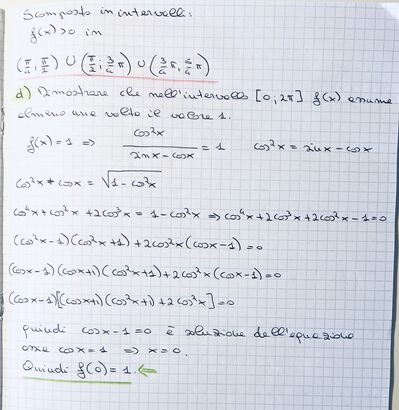 Scomposto in intervalli:
f(x)>0 in
(π/4; π/2) ∪ (π/2; 3/4 π) ∪ (3/4 π; 5/4 π)
d) Dimostrare che nell'intervallo [0; 2π] f(x) assume
almeno una volta il valore 1.
f(x)=1 => cos²x / (sinx - cosx) = 1 cos²x = sinx - cosx
cos²x + cosx = √(1 - cos²x)
cos⁴x + cos²x + 2cos³x = 1 - cos²x => cos⁴x + 2cos³x + 2cos²x - 1 = 0
(cos²x - 1)(cos²x + 1) + 2cos²x (cosx - 1) = 0
(cosx - 1)(cosx + 1)(cos²x + 1) + 2cos²x (cosx - 1) = 0
(cosx - 1)[(cosx + 1)(cos²x + 1) + 2cos²x] = 0
quindi cosx - 1 = 0 è soluzione dell'equazione
ossia cosx = 1 => x = 0.
Quindi f(0) = 1.